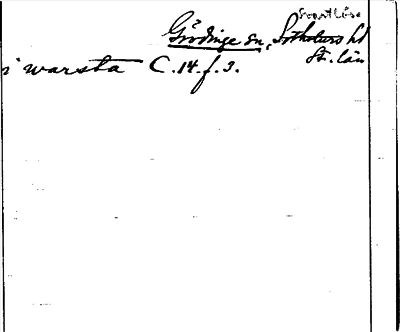 Svartlösa
Grödinge sn, Sotholms hd
St. län
i warsta C.14.f.3.